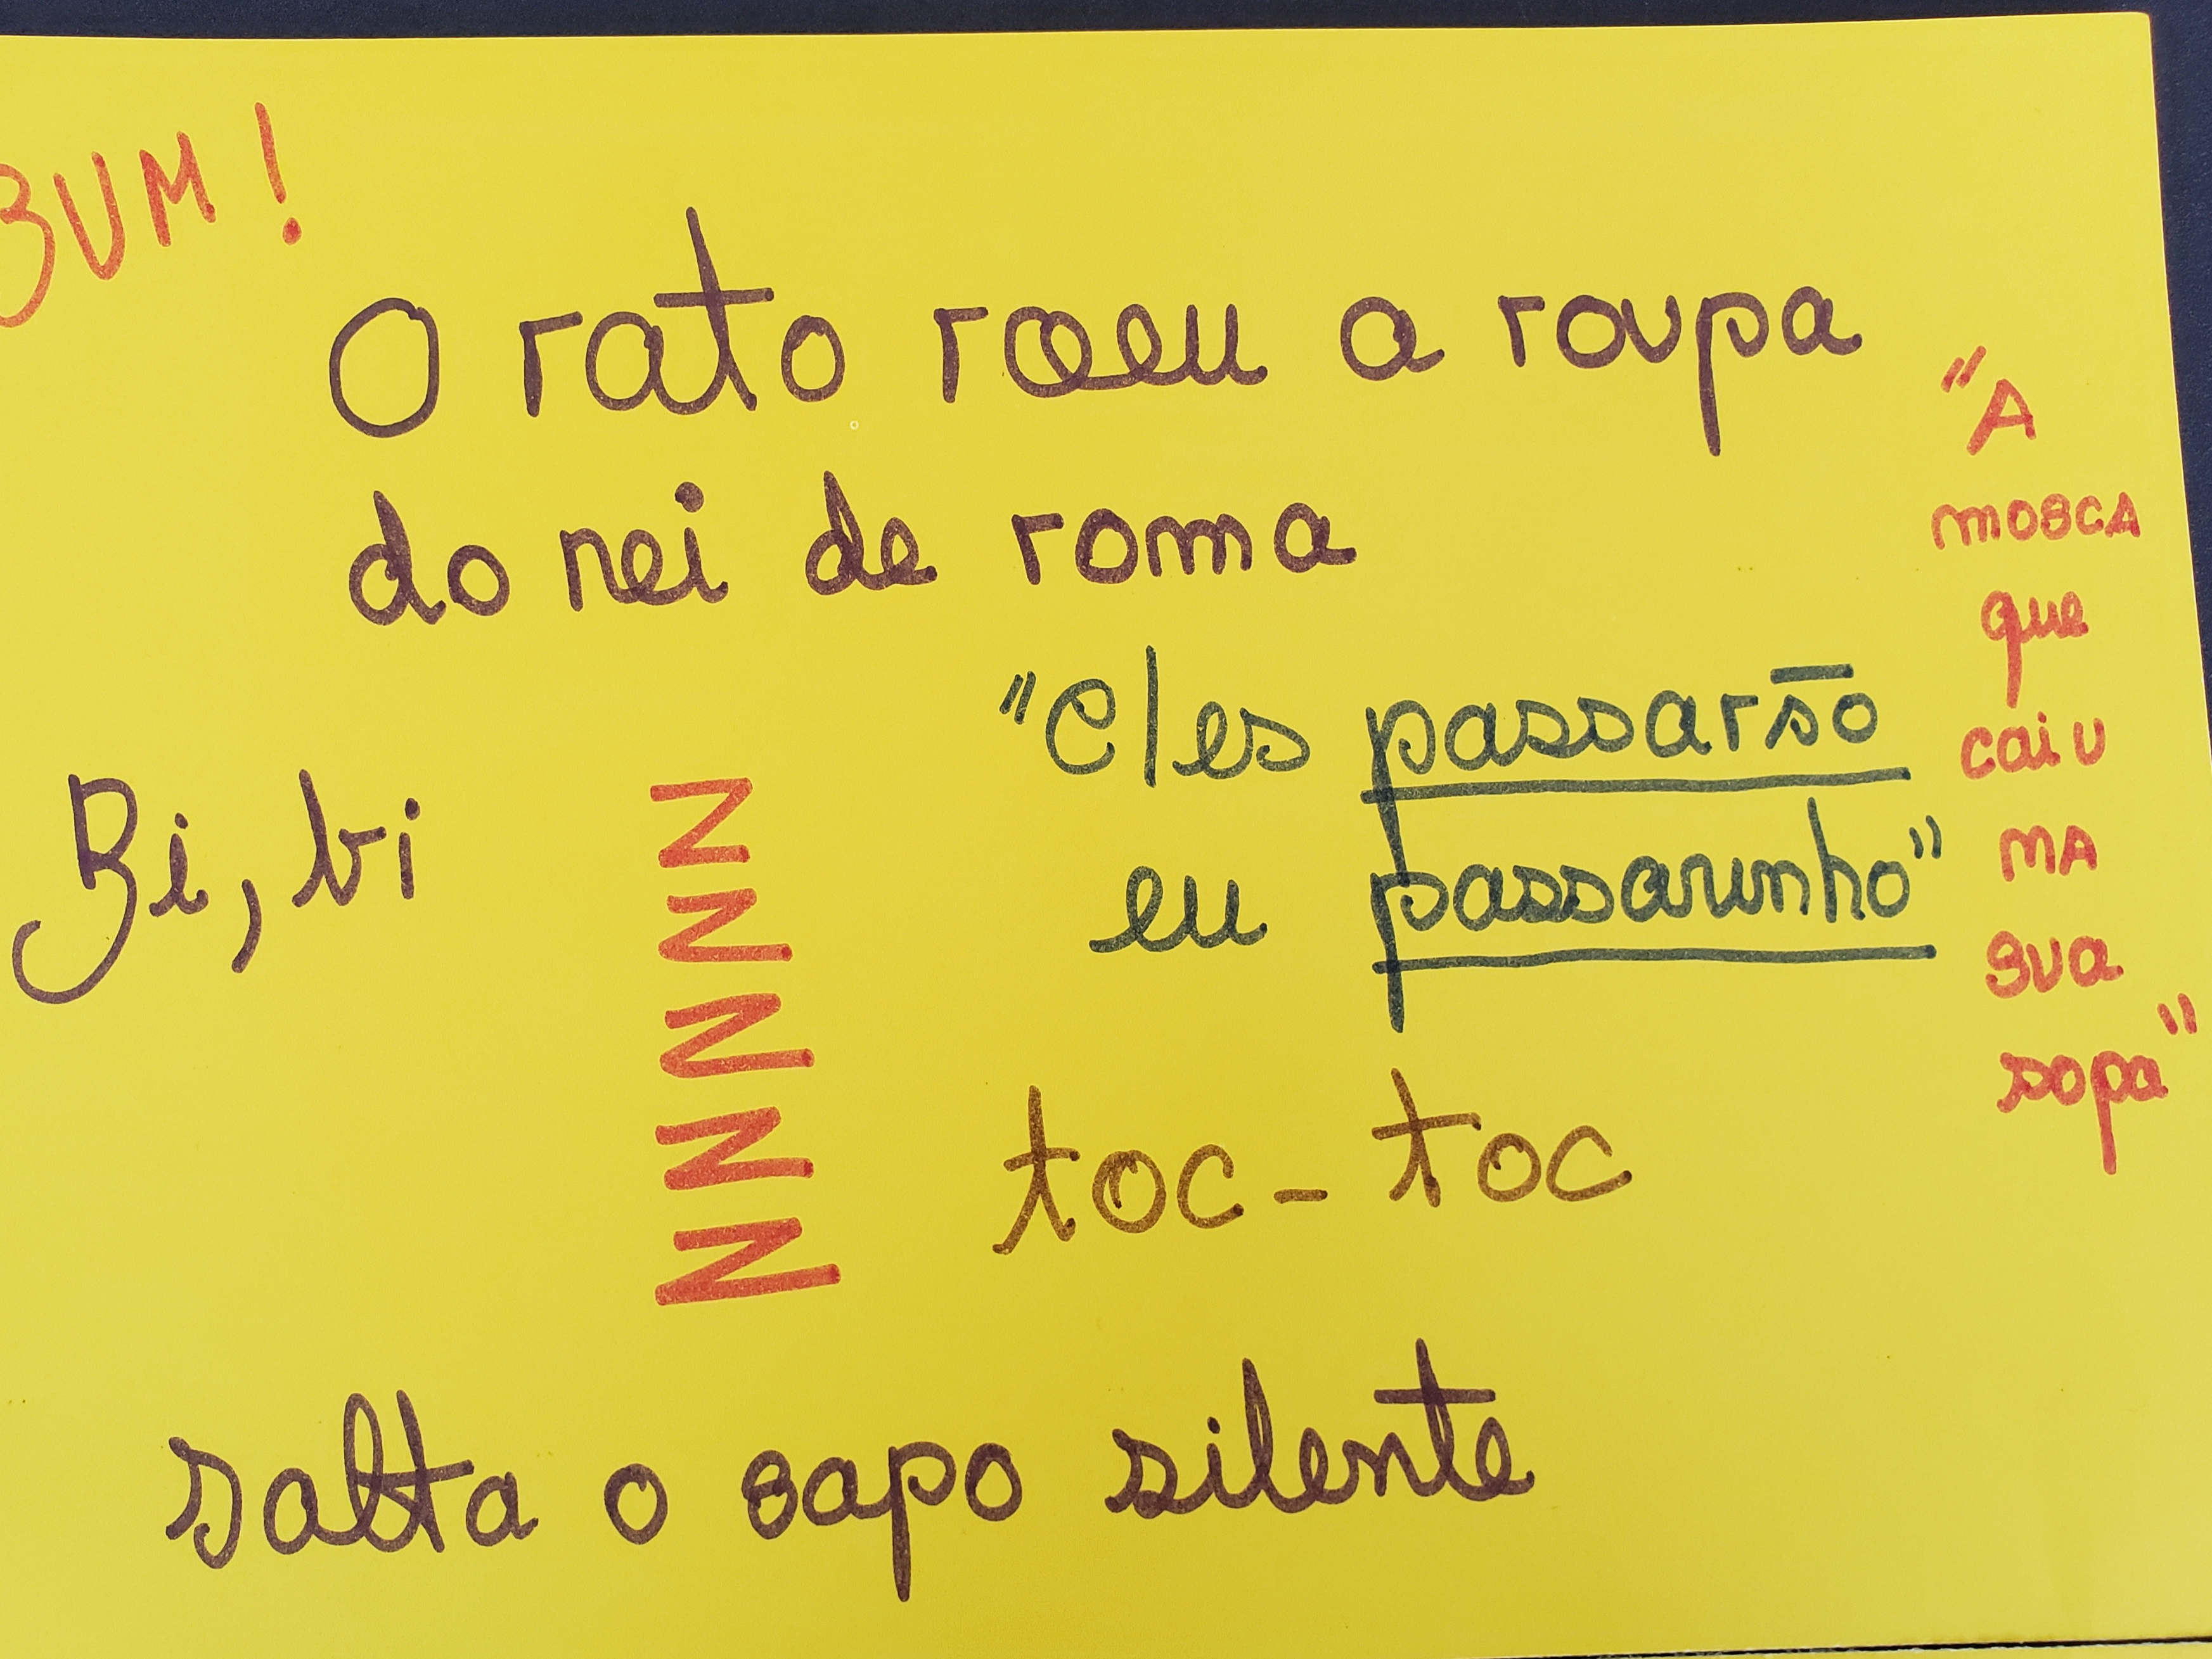 BUM!
O rato roeu a roupa
do rei de roma
"A
mosca
que
caiu
na
sua
sopa"
"Eles passarão
eu passarinho"
Bi, bi
Z
Z
Z
Z
Z
toc - toc
salta o sapo silente